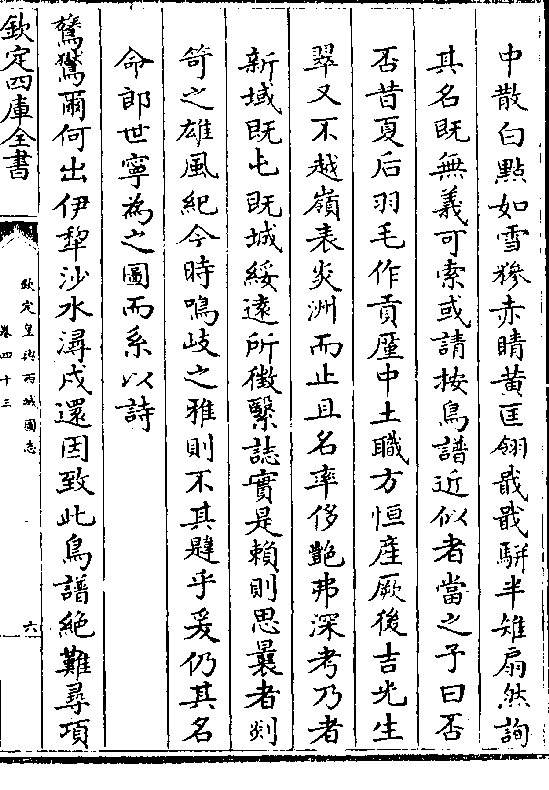 中散白點如雪糝赤睛黄匡翎戢戢駢半雉扇然詢
其名既無義可索或請按鳥譜近似者當之予曰否
否昔夏后羽毛作貢厪中土職方恒産厥後吉光生
翠又不越嶺表炎洲而止且名率侈艶弗深考乃者
新域既屯既城綏逺所徴繫誌實是賴則思曩者剡
笴之雄風紀今時鳴岐之雅則不其韙乎爰仍其名
命郎世寧為之圖而系以詩
鷔鷔爾何出伊犂沙水潯戍還因致此鳥譜絶難尋項
欽定四庫全書
欽定皇輿西域圖志
卷四十三
六